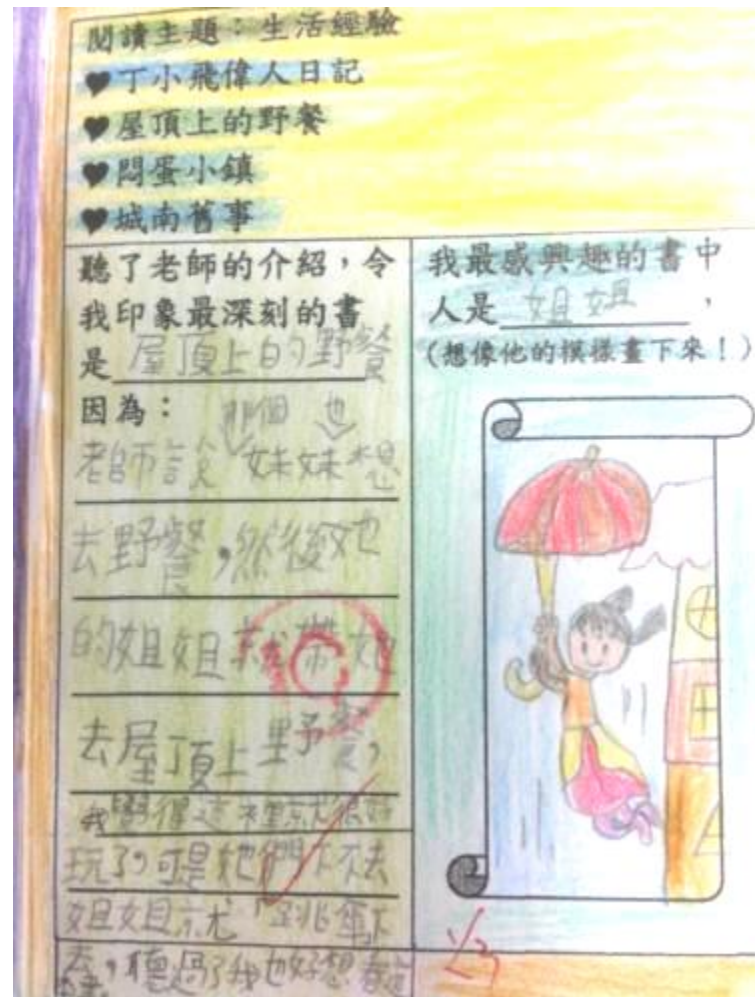 閱讀主題：生活經驗
♥丁小飛偉人日記
♥屋頂上的野餐
♥悶蛋小鎮
♥城南舊事
聽了老師的介紹，令
我印象最深刻的書
是屋頂上的野餐
因為：
那個 也
老師說妹妹想
去野餐，然後她
的姐姐就帶她
去屋頂上野餐，
我覺得這裡就很好
玩了，可是她們下不去
姐姐就「跳傘」下
去，聽過了我也好想看這
本書。
我最感興趣的書中
人是姐姐，
(想像他的模樣畫下來！)
1/3